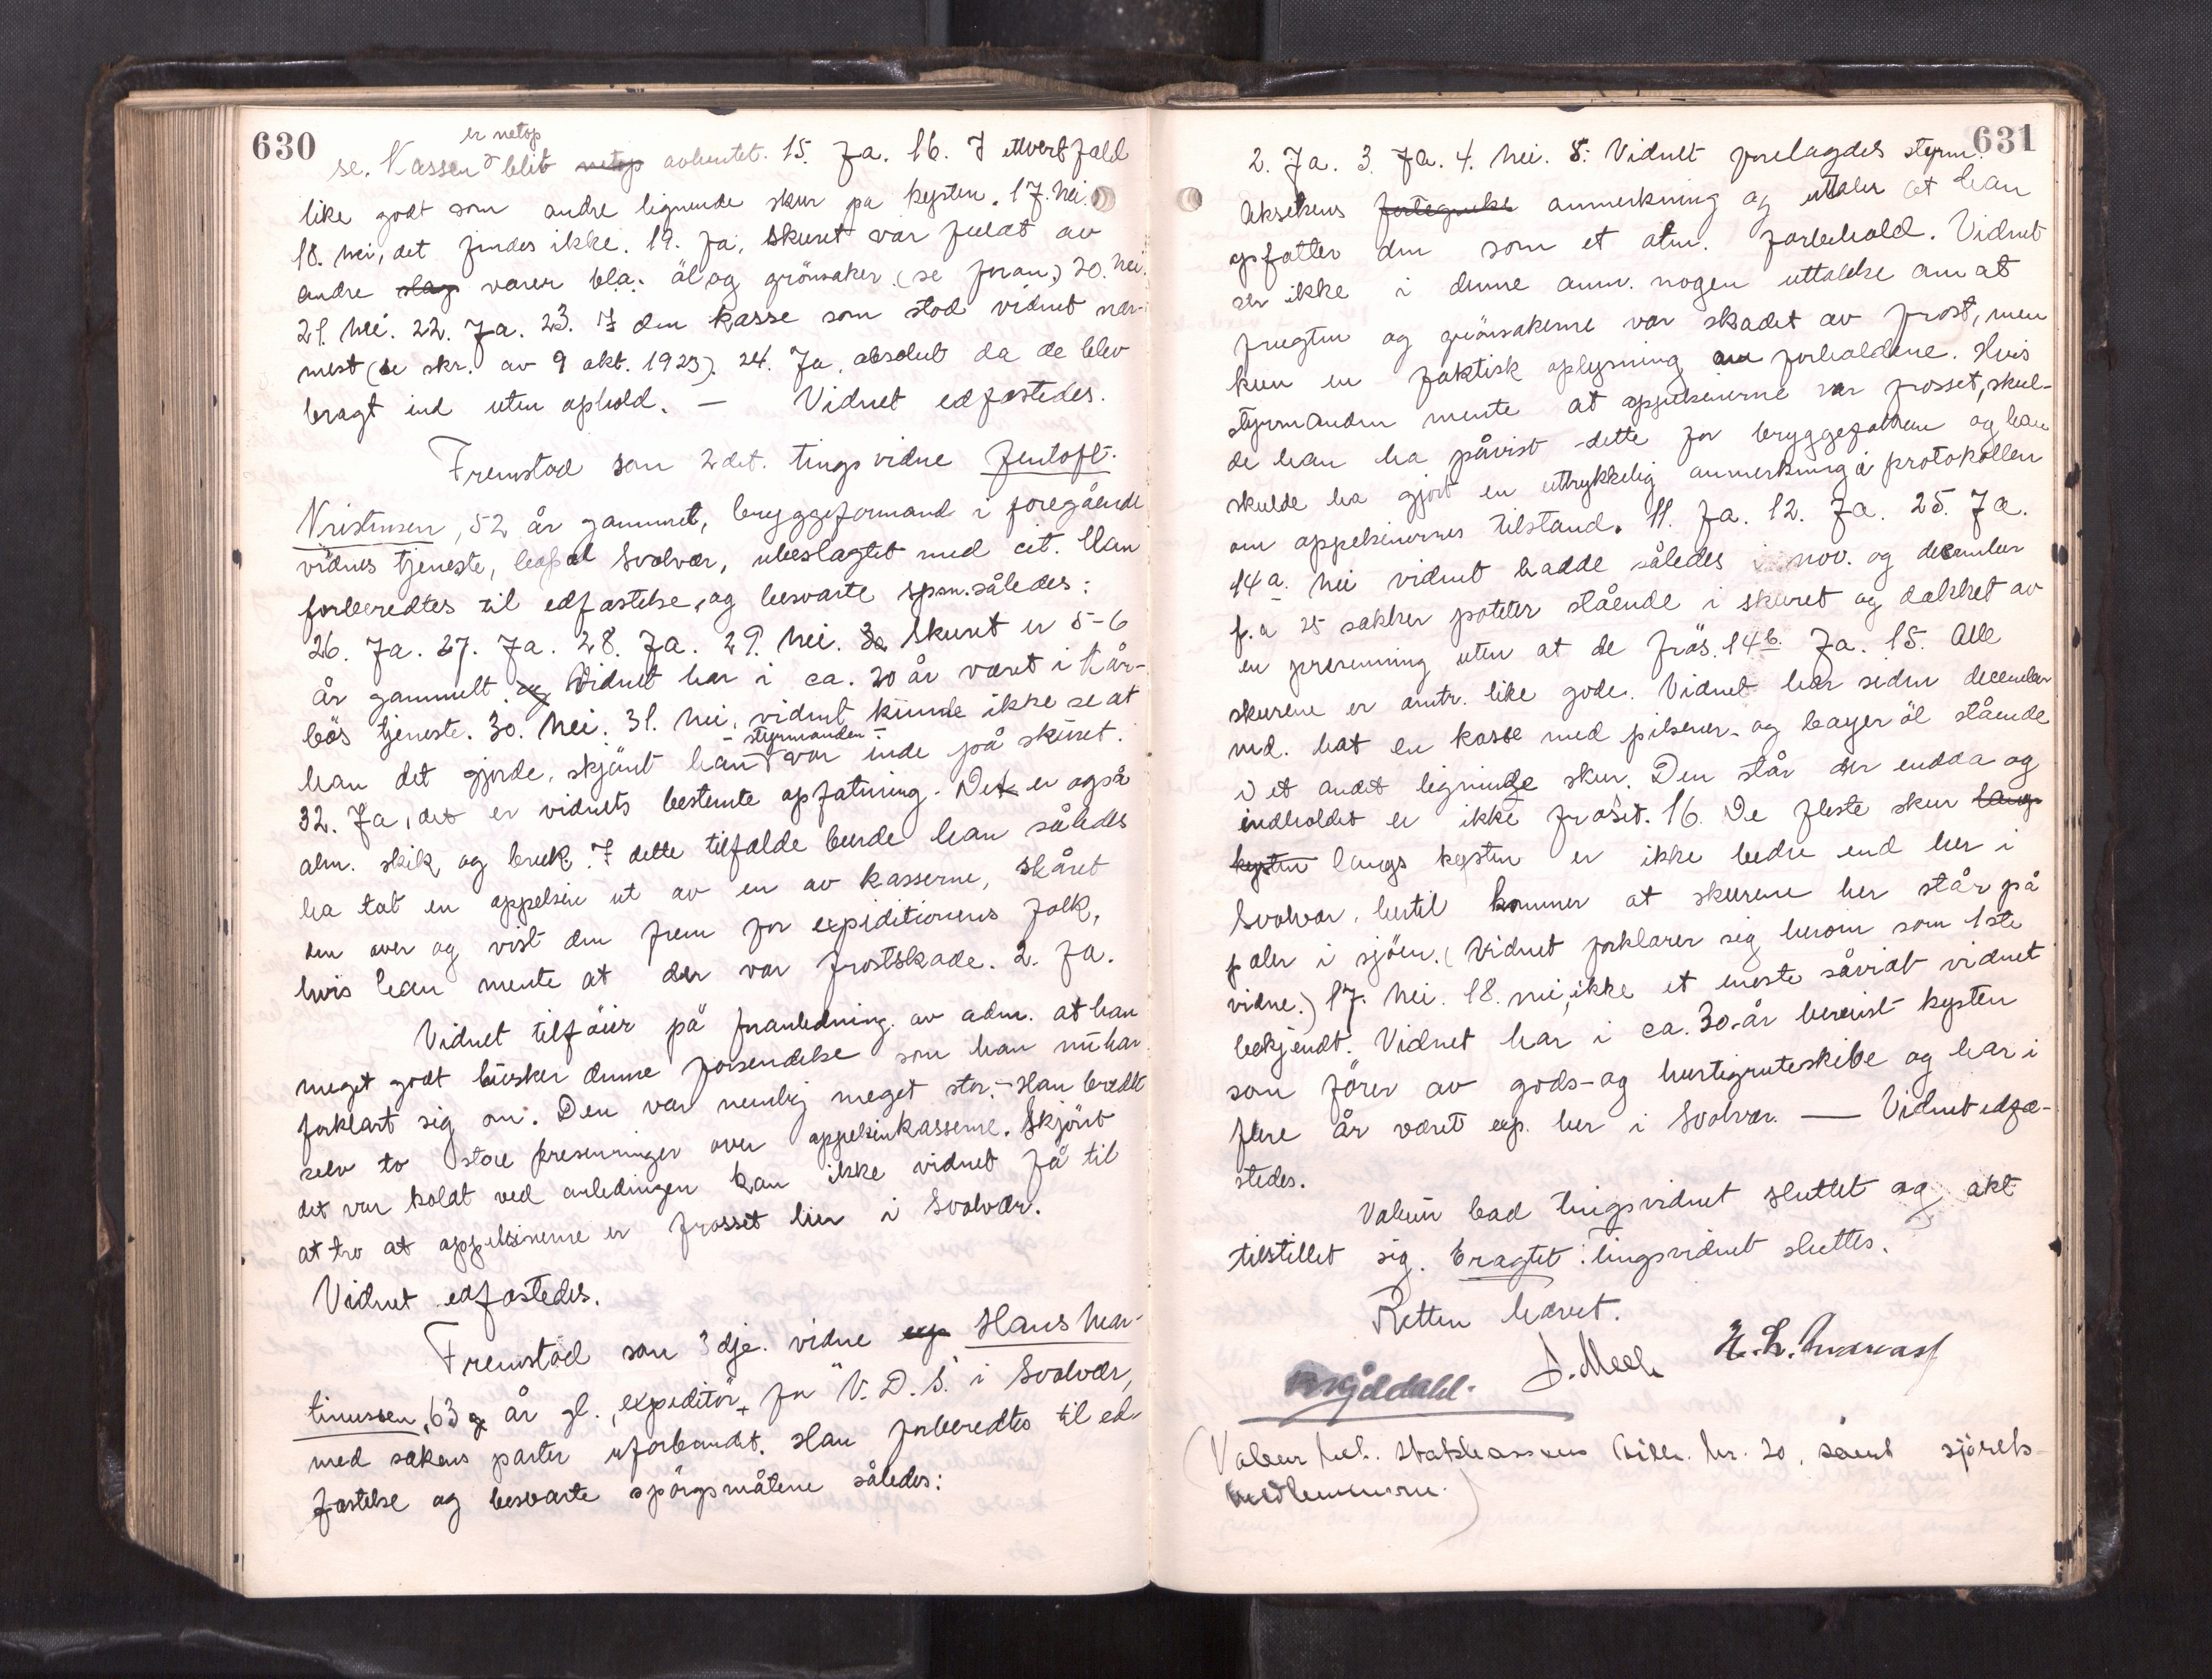 630
er netop
se. Kassen blit netop avhentet. 15. Ja. 16. I ethvert fald
like godt som andre lignende skur på kysten. 17. Nei.
18. Nei, det findes ikke. 19. Ja, skuret var fuldt av
andre slag varer bl.a. öl og grönsaker (se foran) 20. Nei.
21. Nei. 22. Ja. 23. I den kasse som stod vidnet nær-
mest (se skr. av 9 okt. 1923). 24. Ja, absolut da de blev
bragt ind uten ophold. — Vidnet edfæstedes.
Fremstod som 2det. tingsvidne Jentoft
Kristensen, 52 år gammel, bryggeformand i foregående
vidnes tjeneste, bopæl Svolvær, ubeslægtet med cit. Han
forberedtes til edfæstelse, og besvarte spsm. således:
26. Ja. 27. Ja. 28. Ja. 29. Nei. 30 Skuret er 5-6
år gammelt. og Vidnet har i ca. 20 år været i hår-
bös tjeneste. 30. Nei. 31. Nei, vidnet kunde ikke se at
- styrmanden -
han det gjorde, skjönt han var inde på skuret.
32. Ja, det er vidnets bestemte opfatning. Det er også
alm. skik og bruk. I dette tilfælde burde han således
ha tat en appelsin ut av en av kasserne, skåret
den over og vist den frem for expeditionens folk,
hvis han mente at der var frostskade. 2. Ja.
Vidnet tilföier på foranledning av adm. at han
meget godt husker denne forsendelse som han nu har
forklart sig om. Den var nemlig meget stor. - Han bredte
selv to store presenninger over appelsinkasserne. Skjönt
det var koldt ved anledingen kan ikke vidnet få til
at tro at appelsinerne er frosset her i Svolvær.
Vidnet edfæstedes.
Fremstod som 3dje. vidne exp Hans Mar-
tinussen, 63 år gl., expeditör for "V.D.S." i Svolvær,
med sakens parter uforbundet. Han forberedtes til ed-
fæstelse og besvarte spörgsmålene således:
631
2. Ja. 3. Ja. 4. Nei. 8. Vidnet forelagdes styrm.
Aksekens fortegnelse anmerkning og uttaler at han
opfatter den som et alm. forbehold. Vidnet
ser ikke i denne anm. nogen uttalelse om at
frugten og grönsakerne var skadet av frost, men
kun en faktisk oplysning om forholdene. Hvis
styrmanden mente at appelsinerne var frosset, skul-
de han ha påvist dette for bryggefolkene og han
skulde ha gjort en uttrykkelig anmerkning i protokollen
om appelsinernes tilstand. 11. Ja. 12. Ja. 25. Ja.
14a. Nei vidnet hadde således i nov. og december
f.a 25 sækker poteter stående i skuret og dækket av
en presenning uten at de frös. 14b. Ja. 15. Alle
skurene er omtr. like gode. Vidnet har siden december
md. hat en kasse med pilsener- og bayer öl stående
i et andet lignende skur. Den står der endda og
indholdet er ikke frosset. 16. De fleste skur langs
kysten langs kysten er ikke bedre end her i
Svolvær, hertil kommer at skurene her står på
pæler i sjöen. (Vidnet forklarer sig herom som 1ste
vidne.) 17. Nei. 18. nei, ikke et eneste såvidt vidnet
bekjendt. Vidnet har i ca. 30 år bereist kysten
som förer av gods- og hurtigruteskibe og har i
flere år været exp. her i Svolvær. — Vidnet edfæ-
stedes.
Valeur bad tingsvidnet sluttet og akt
tilstillet sig. Eragtet: tingsvidnet sluttes.
Retten hævet.
(Valeur bet. Statskassens bill. kr. 20, samt sjörets-
medlemmerne.)